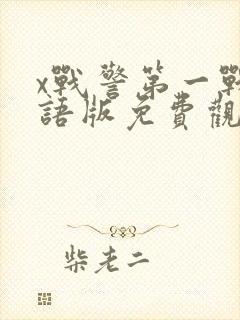 x戰警第一戰
語版免費觀
柴老二